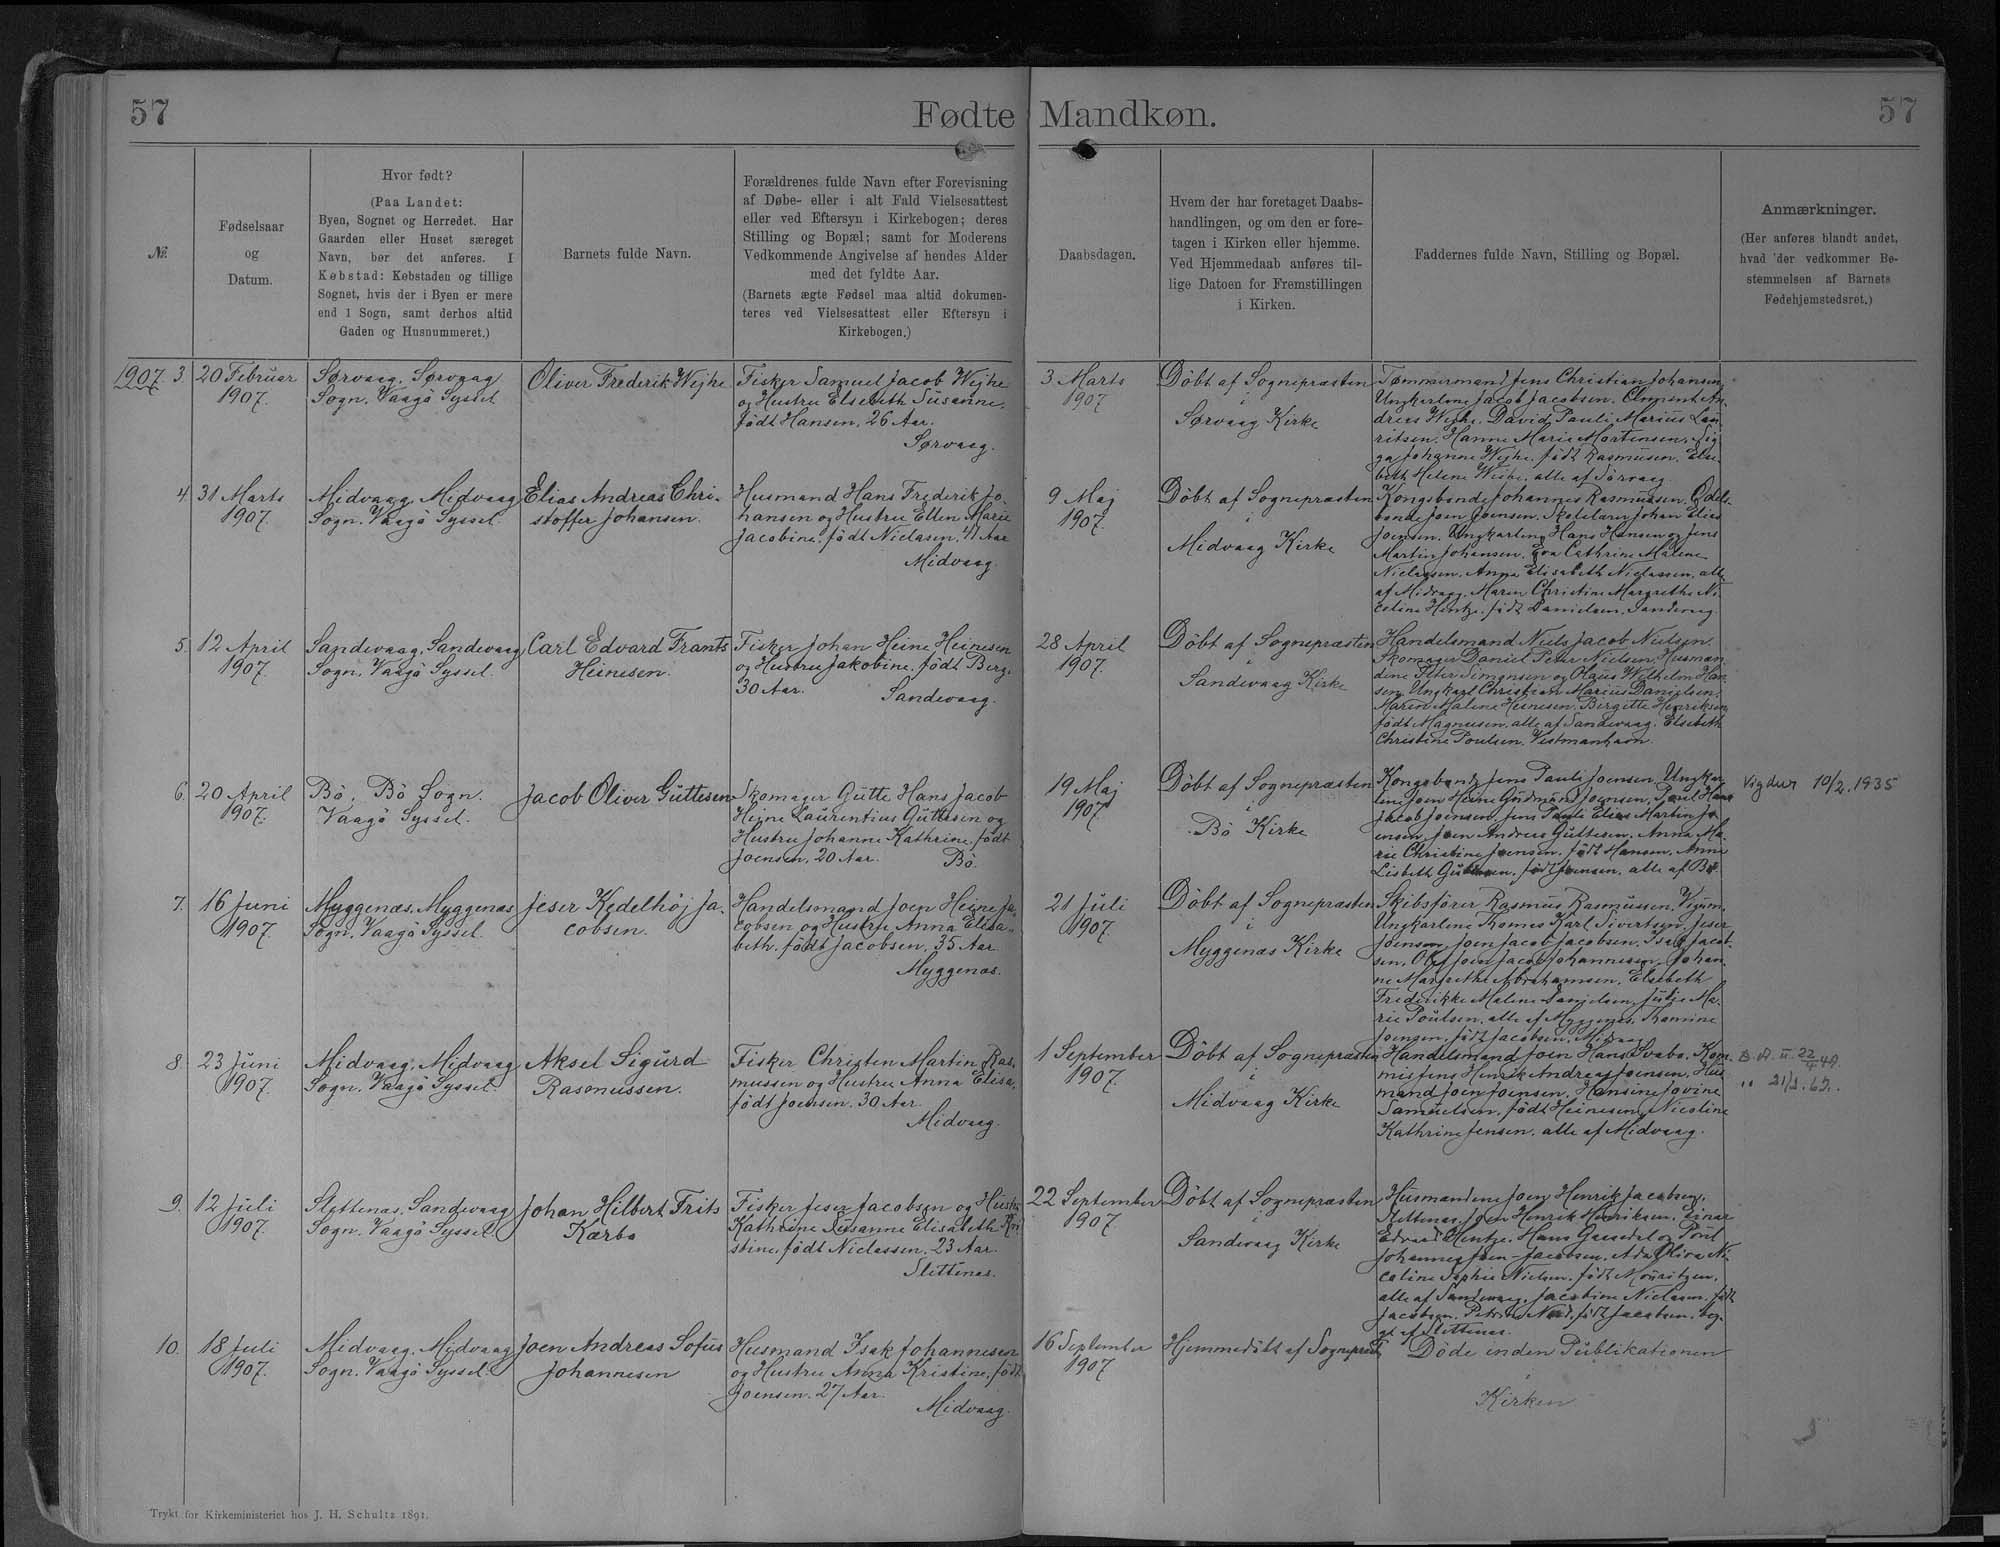 57
Fødte Mandkøn.
57
№
Fødselsaar
og
Datum.
Hvor født?
(Paa Landet:
Byen, Sognet og Herredet. Har
Gaarden eller Huset særeget
Navn, bør det anføres. I
Købstad: Købstaden og tillige
Sognet, hvis der i Byen er mere
end 1 Sogn, samt derhos altid
Gaden og Husnummeret.)
Barnets fulde Navn.
Forældrenes fulde Navn efter Forevisning
af Døbe- eller i alt Fald Vielsesattest
eller ved Eftersyn i Kirkebogen; deres
Stilling og Bopæl; samt for Moderens
Vedkommende Angivelse af hendes Alder
med det fyldte Aar.
(Barnets ægte Fødsel maa altid dokumen-
teres ved Vielsesattest eller Eftersyn i
Kirkebogen.)
Daabsdagen.
Hvem der har foretaget Daabs-
handlingen, og om den er fore-
tagen i Kirken eller hjemme.
Ved Hjemmedaab anføres til-
lige Datoen for Fremstillingen
i Kirken.
Faddernes fulde Navn, Stilling og Bopæl.
Anmærkninger.
(Her anføres blandt andet,
hvad der vedkommer Be-
stemmelsen af Barnets
Fødehjemstedsret.)
1907. 3.
20 Februar
1907.
Sørvaag. Sørvaag
Sogn. Vaagö Syssel
Oliver Frederik Wejhe
Fisker Samuel Jacob Wejhe
og Hustru Elsebeth Susanne,
født Hansen, 26 Aar.
Sørvaag.
3 Marts
1907
Döbt af Sognepræsten
i
Sørvaag Kirke
Tømmermand Jens Christian Johansen,
Ungkarlene Jacob Jacobsen, Clement An-
dreas Wejhe, David Pauli Marius Lau-
ritsen, Hanne Marie Mortensen, Sig-
ga Johanne Wejhe, født Rasmussen, Else-
beth Helene Wejhe, alle af Sörvaag.
4.
31 Marts
1907.
Midvaag, Midvaag
Sogn. Vaagö Syssel.
Elias Andreas Chri-
stoffer Johansen.
Husmand Hans Frederik Jo-
hansen og Hustru Ellen Marie
Jacobine, født Niclasen, 41 Aar
Midvaag.
9 Maj
1907.
Döbt af Sognepræsten
i
Midvaag Kirke
Kongsbonde Johannes Rasmussen, Odels-
bonde Joen Joensen, Skolelærer Johan Elias
Joensen, Ungkarlene Hans Hansen og Jens
Martin Johansen, Eva Cathrine Malene
Niclassen, Anna Elisabeth Niclassen, alle
af Midvaag, Maren Christine Margrethe Ni-
celine Hentze, født Danielsen, Sandevaag
5.
12 April
1907.
Sandevaag, Sandevaag
Sogn, Vaagö Syssel.
Carl Edvard Frants
Heinesen.
Fisker Johan Heine Heinesen
og Hustru Jakobine, født Berg,
30 Aar.
Sandevaag.
28 April
1907.
Döbt af Sognepræsten
i
Sandevaag Kirke
Handelsmand Niels Jacob Nielsen,
Skomager Daniel Peter Nielsen, Husmæn-
dene Peter Simonsen og Olaus Wilhelm Han-
sen, Ungkarl Christian Marius Danielsen,
Maren Malene Heinesen, Birgitte Henriksen,
født Magnusen, alle af Sandevaag, Elsebeth
Christine Poulsen, Vestmanhavn.
6.
20 April
1907.
Bö, Bö Sogn.
Vaagö Syssel.
Jacob Oliver Güttesen
Skomager Gütte Hans Jacob
Heine Laurentius Güttesen og
Hustru Johanne Kathrine, født
Joensen, 20 Aar.
Bö.
19 Maj
1907
Döbt af Sognepræsten
i
Bö Kirke
Kongsbonde Jens Pauli Joensen, Ungkar-
lene Joen Heine Gudmund Joensen, Poul Hans
Jacob Joensen, Jens Pauli Elias Martin Jo-
ensen, Joen Andreas Güttesen, Anna Ma-
rie Christine Joensen, født Hansen, Anne
Lisbeth Güttesen, født Joensen, alle af Bö.
Vigdur 10/2 1935
7.
16 Juni
1907.
Myggenæs, Myggenæs
Sogn. Vaagö Syssel.
Jeser Kedelhøj Ja-
cobsen.
Handelsmand Joen Heine Ja-
cobsen og Hustru Anna Elisa-
beth, født Jacobsen, 35 Aar
Myggenæs.
21 Juli
1907.
Döbt af Sognepræsten
i
Myggenæs Kirke
Skibsfører Rasmus Rasmussen,
Ungkarlene Thomas Karl Sivertsen, Jeser
Joensen, Joen Jacob Jacobsen, Isak Jacob-
sen, Olaf Joen Jacob Johannesen, Johan-
ne Margrethe Abrahamsen, Elsebeth
Frederikke Malene Danjelsen, Julie Ma-
rie Poulsen, alle af Myggenæs, Thomine
Joensen, født Jacobsen, Midvaag
8.
23 Juni
1907.
Midvaag, Midvaag
Sogn. Vaagö Syssel.
Aksel Sigurd
Rasmussen.
Fisker Christen Martin Ras-
mussen og Hustru Anna Elisa,
født Joensen, 30 Aar.
Midvaag.
1 September
1907.
Döbt af Sognepræsten
i
Midvaag Kirke
Handelsmand Joen Hans Svabo, Kom-
mis Jens Henrik Andreas Joensen, Hus-
mand Joen Joensen, Hansine Jovine
Samuelsen, født Heinesen, Nicoline
Kathrine Jensen, alle af Midvaag.
D. A. II. 22/4 49.
" 21/2. 62.
9.
12 Juli
1907.
Slettenæs, Sandevaag
Sogn. Vaagö Syssel.
Johan Hilbert Frits
Kærbo
Fisker Jeser Jacobsen og Hustru
Kathrine Susanne Elisabeth Kri-
stine, født Niclassen, 23 Aar.
Slettenæs.
22 September
1907.
Döbt af Sognepræsten
i
Sandevaag Kirke
Husmændene Joen Henrik Jacobsen,
Slettenæs, Joen Henrik Henriksen, Einar
Edvard Hentze, Hans Gaasedal og Poul
Johannes Joen-Jacobsen, Ada Oliva Ni-
coline Sophie Nielsen, født Mouritzen,
alle af Sandevaag, Jacobine Niclasen, født
Jacobsen, født Jacobsen, beg-
ge af Slettenæs.
10.
18 Juli
1907.
Midvaag, Midvaag
Sogn. Vaagö Syssel.
Joen Andreas Sofus
Johannesen
Husmand Isak Johannesen
og Hustru Anna Kristine, født
Joensen, 27 Aar.
Midvaag.
16 September
1907
Hjemmedöbt af Sognepræst
Döde inden Publikationen
i
Kirken
Trykt for Kirkeministeriet hos J. H. Schultz 1891.